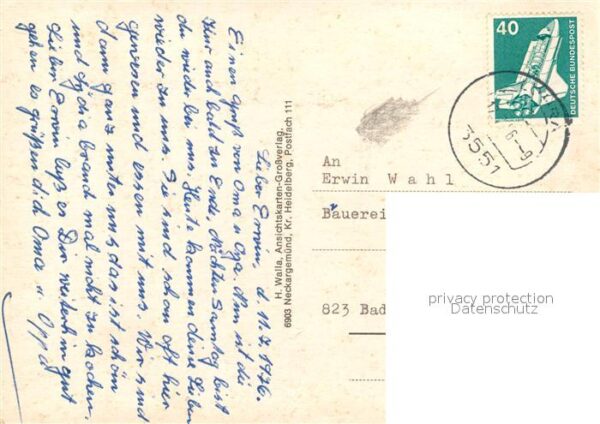 Lieber Erwin, d. 11.7.1976.
Einen Gruß von Oma u. Opa. Nun ist die
Kur auch bald zu Ende, Nächsten Samstag bist
du wieder bei uns. Heute kommen deine Lieben
wieder zu uns. Sie sind schon oft hier
gewesen und essen mit uns. Wir sind
dann ganz unter uns, das ist schön
und Lydia brand mal nicht zu kochen.
Lieber Erwin laß es Dir weiterhin gut
gehen es grüßen dich Oma u. Oppa
H. Walla, Ansichtskarten-Großverlag,
6903 Neckargemünd, Kr. Heidelberg, Postfach 111
40
DEUTSCHE BUNDESPOST
3551
An
Erwin Wahl
Bäuerei
823 Bad
privacy protection
Datenschutz